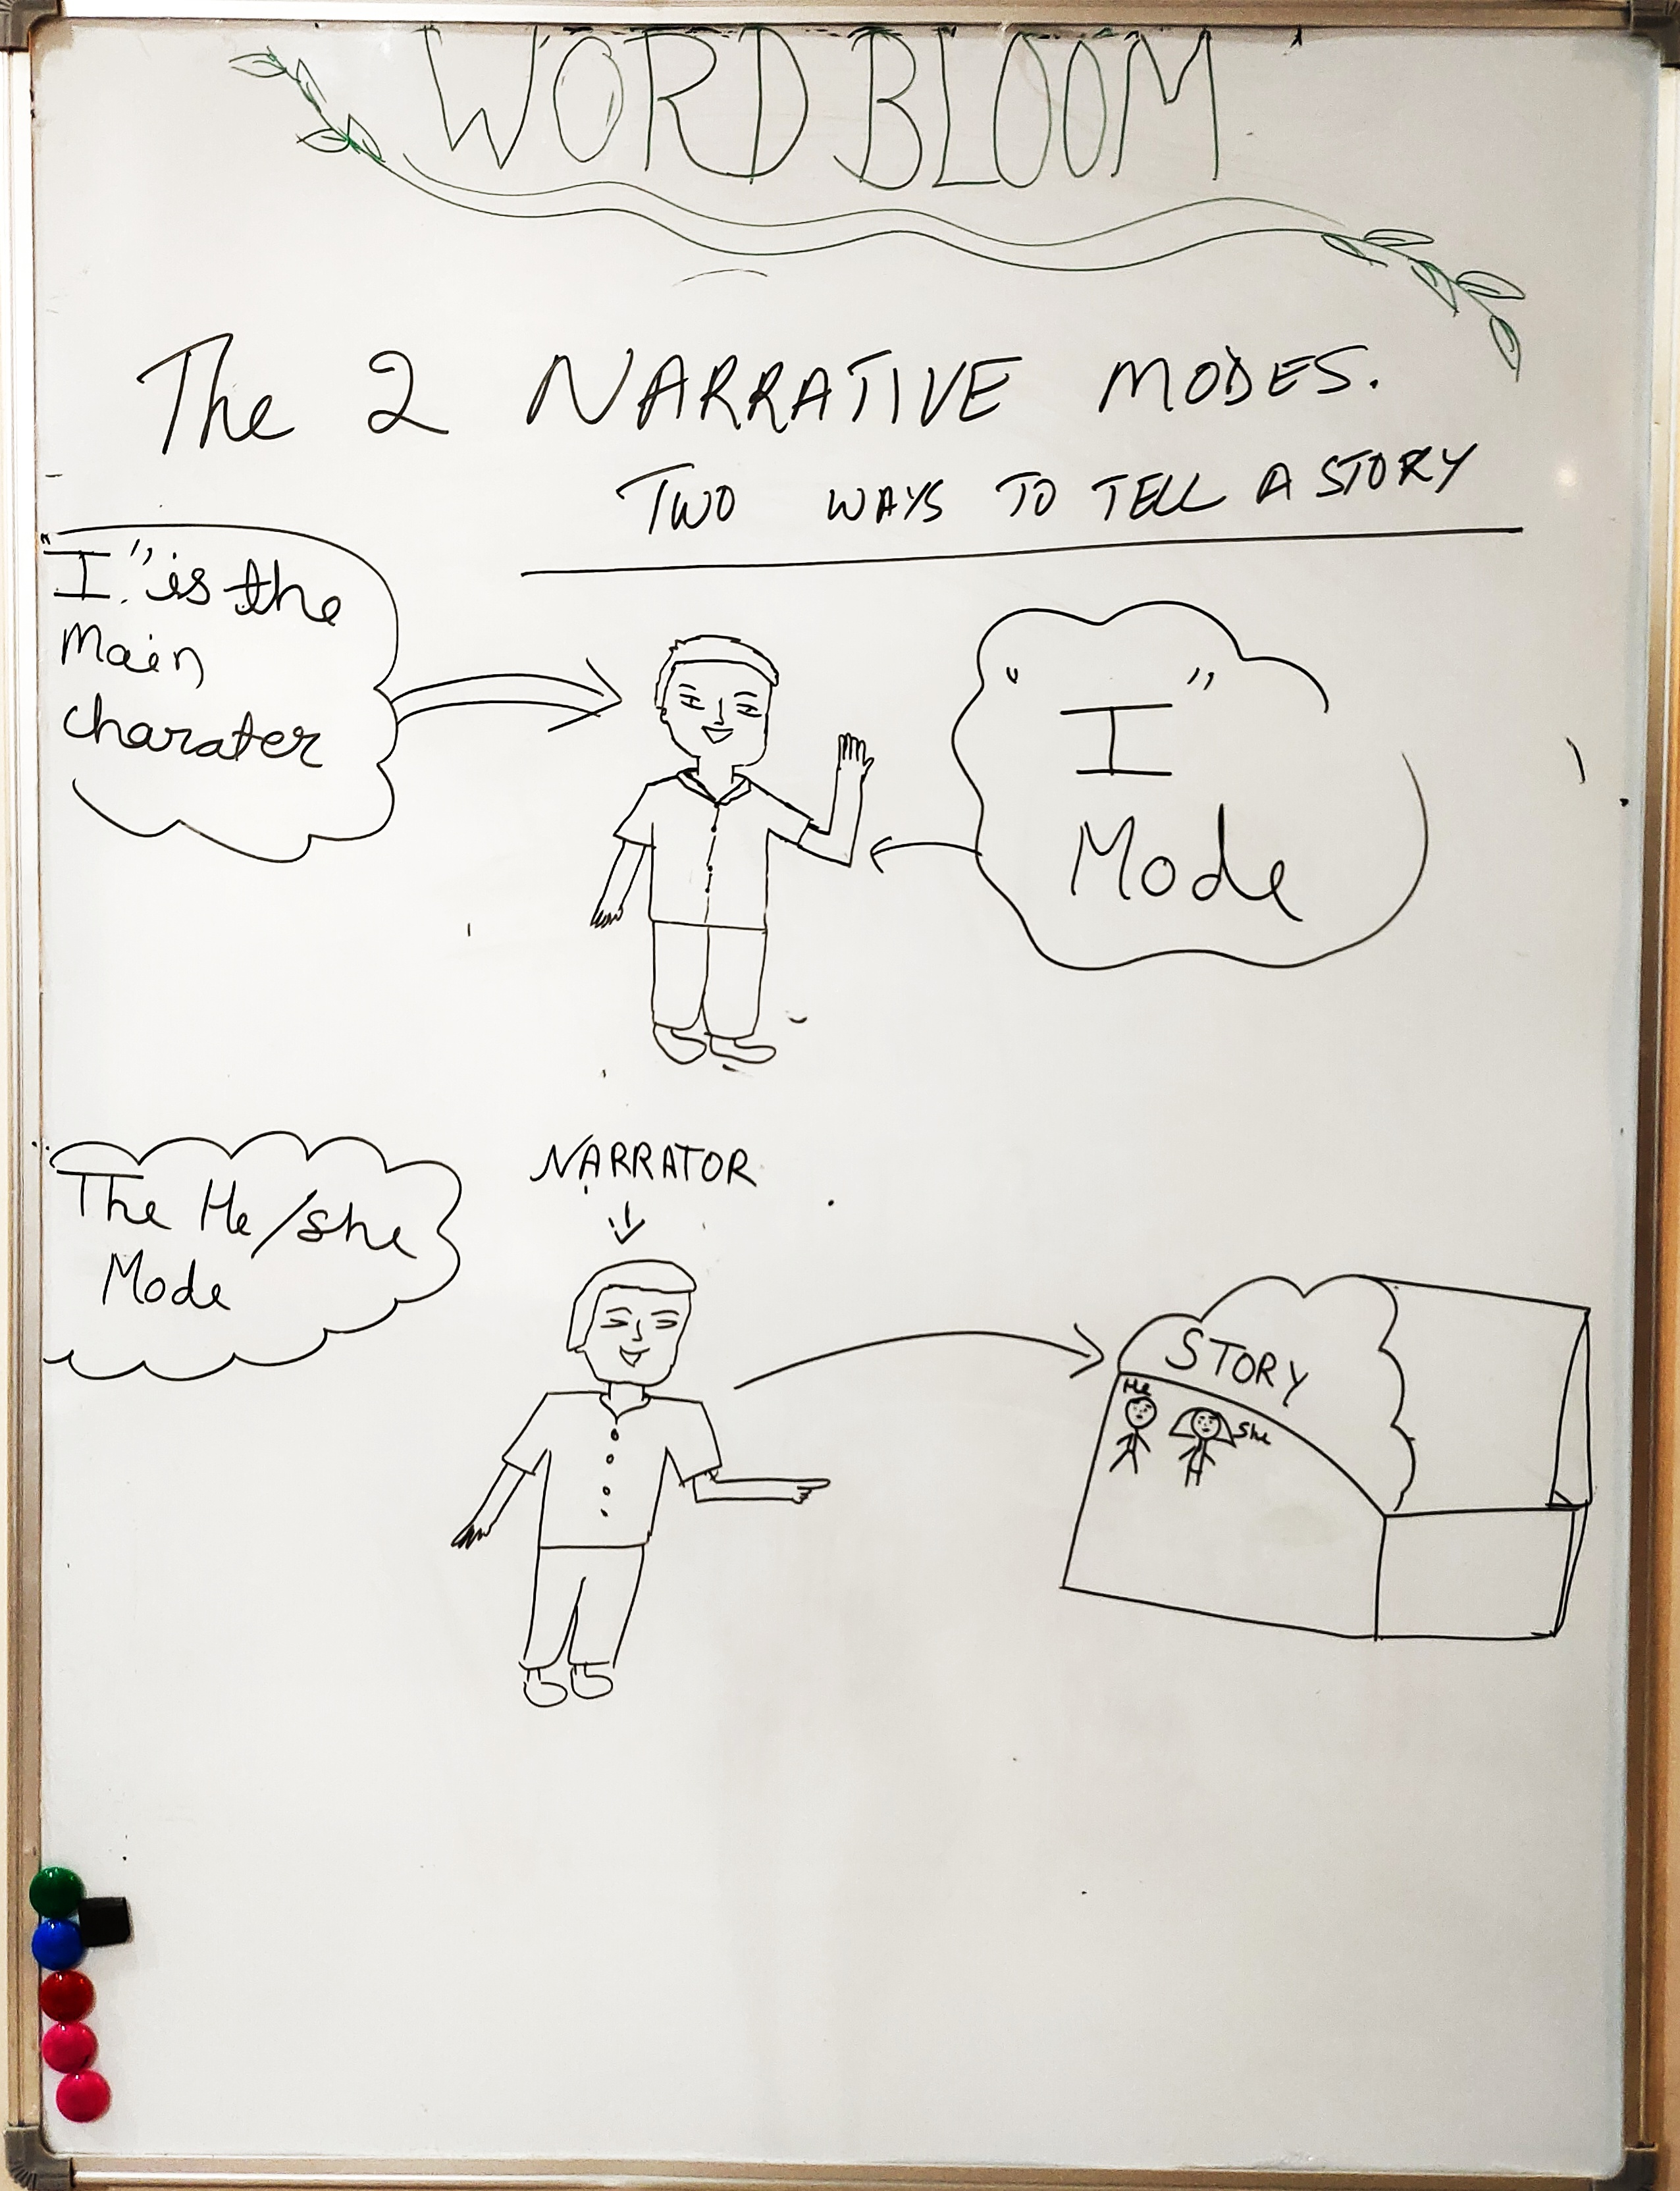 WORD BLOOM
The 2 NARRATIVE MODES.
TWO WAYS TO TELL A STORY
"I" is the
Main
charater
"I"
Mode
NARRATOR
The He/she
Mode
STORY
He
She